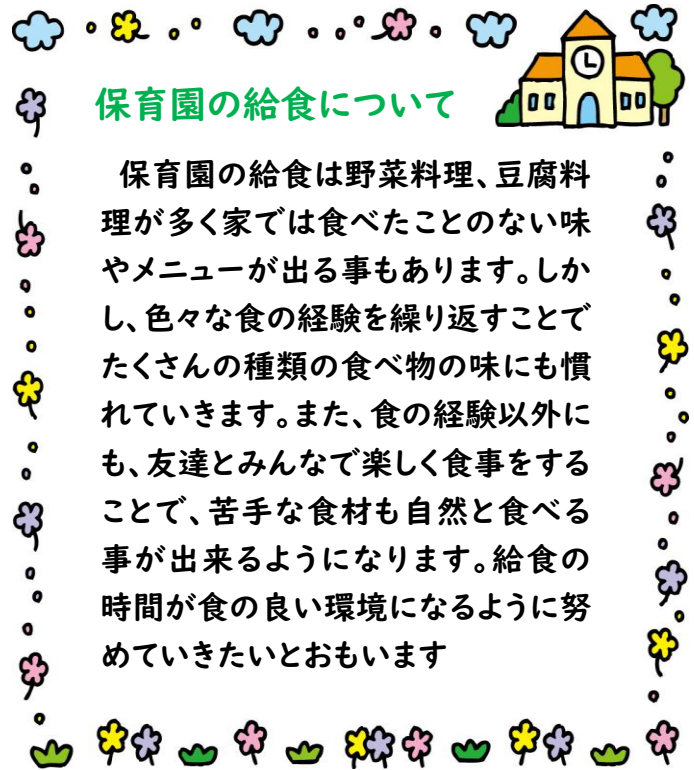 保育園の給食について
保育園の給食は野菜料理、豆腐料
理が多く家では食べたことのない味
やメニューが出る事もあります。しか
し、色々な食の経験を繰り返すことで
たくさんの種類の食べ物の味にも慣
れていきます。また、食の経験以外に
も、友達とみんなで楽しく食事をする
ことで、苦手な食材も自然と食べる
事が出来るようになります。給食の
時間が食の良い環境になるように努
めていきたいとおもいます